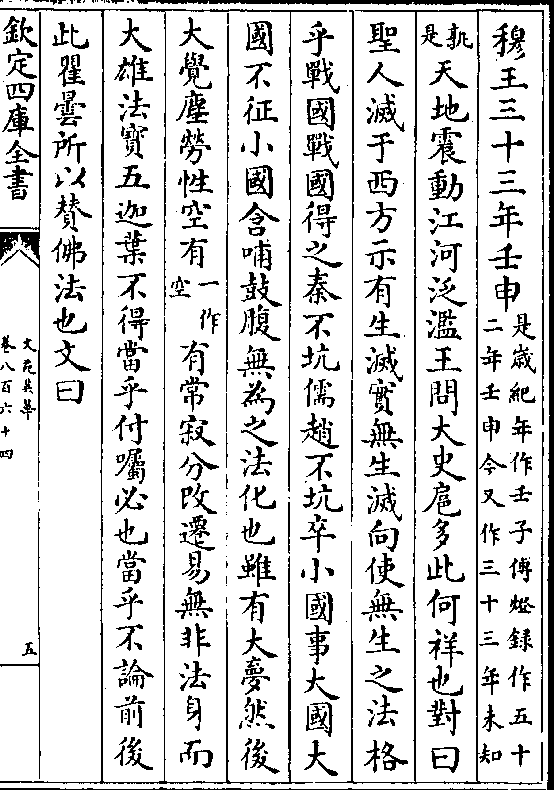 穆王三十三年壬申是歳紀年作壬子傅燈録作五十二年壬申今又作三十三年未知
孰是天地震動江河泛濫王問大史扈多此何祥也對曰
聖人滅于西方示有生滅實無生滅向使無生之法格
乎戰國戰國得之秦不坑儒趙不坑卒小國事大國大
國不征小國含哺鼓腹無為之法化也雖有大夢然後
大覺塵勞性空有一作空有常寂分改遷易無非法身而
大雄法寶五迦葉不得當乎付囑必也當乎不論前後
此瞿曇所以賛佛法也文曰
欽定四庫全書
文苑英華
卷八百六十四
五